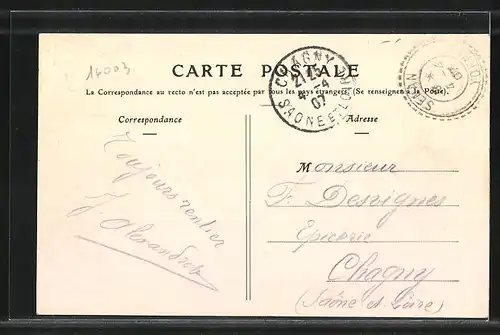 16003
CARTE POSTALE
La Correspondance au recto n'est pas acceptée par tous les pays étrangers. (Se renseigner à la Poste).
CHAGNY
21 25
4 - 4
07
SAONE-ET-LOIRE
Correspondance
Adresse
Toujours rentier
J. Alexandre
Monsieur
F. Desvignes
Epicerie
Chagny
(Saône et Loire)